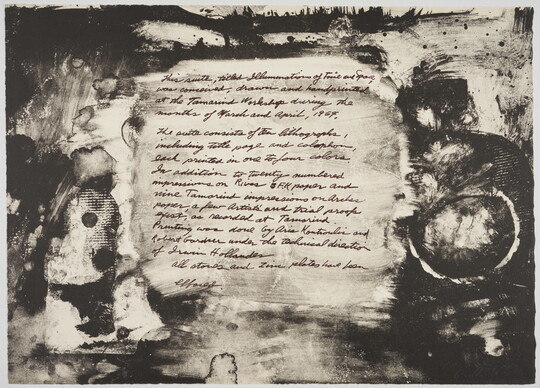 This suite, titled Illuminations of Time and Space
was conceived, drawn and handprinted
at the Tamarind Workshop during the
months of March and April, 1964.
The suite consists of ten lithographs,
including title page and colophon,
each printed in one to four colors.
In addition to twenty numbered
impressions on Rives BFK paper and
nine Tamarind impressions on Arches
paper, a few Artists and trial proofs
exist, as recorded at Tamarind
Printing was done by and
Robert Gardner under the technical direction
of Irwin Hollander
All stones and zinc plates have been
effaced